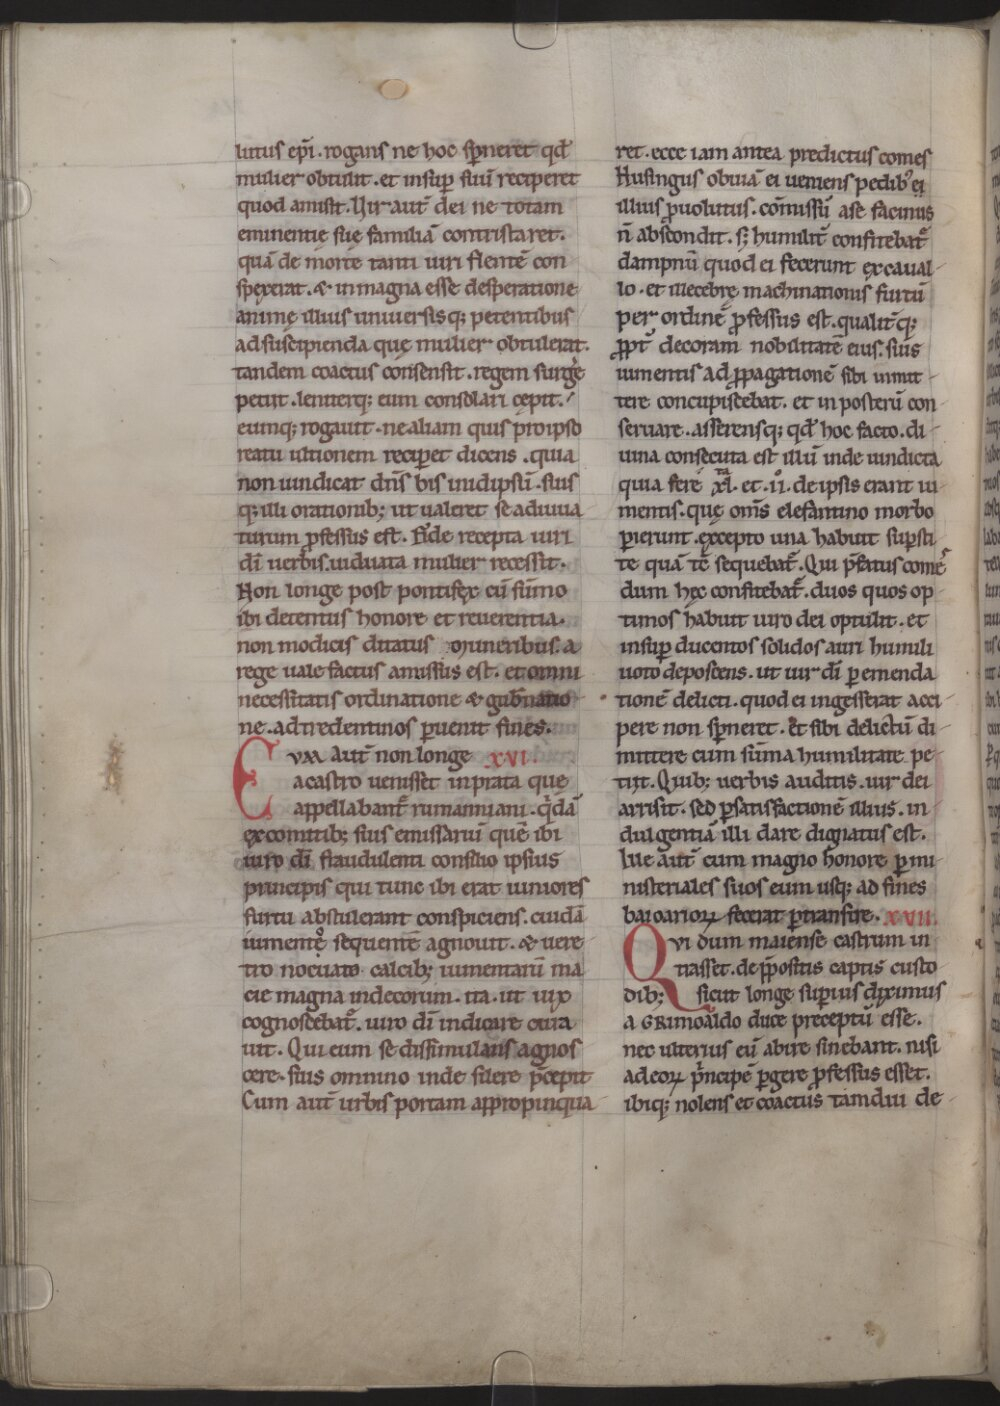 lutus ep̄i. rogans ne hoc sp̄neret qd̄
mulier obtulit. et insup̄ suū reciperet
quod amisit. Vir aut̄ dei ne totam
eminentię suę familiā contristaret.
quā de morte tanti uiri flentē con
spexerat. & in magna esse desperatione
animę illius uniuersisq; petentibus
ad suscipienda quę mulier obtulerat.
tandem coactus consensit. regem surḡe
petiit. leniterq; eum consolari cępit.
eumq; rogauit. ne aliam quis pro ipso
reatu ultionem recip̄et dicens. quia
non uindicat dn̄s bis in idipsū. suis
q; illi orationib; ut ualeret se adiuua
turum p̄fessus est. Fide recepta uiri
dī uerbis. uiduata mulier recessit.
Non longe post pontifex cū sūmo
ibi detentus honore et reuerentia.
non modicis ditatus muneribus. a
rege uale factus amissus est. et omni
necessitatis ordinatione & gub̄natio
ne. ad tredentinos p̄uenit fines.
Cvm aut̄ non longe xvi.
a castro uenisset in prata que
appellabant̄ rumanniani. q̄dā
ex comitib; suis emissariū quē ibi
uiro dī fraudulenti consilio ipsius
principis qui tunc ibi erat iuniores
furtu abstulerant conspiciens. cuidā
iumento sequentē agnouit. & uere
tro nocuato calcib; iumentariū ma
cie magna indecorum. ita. ut uix
cognoscebat̄. uiro dī indicare cura
uit. Qui eum se dissimulans agnos
cere. suis omnino inde silere p̄cepit
Cum aut̄ urbis portam appropinqua
ret. ecce iam antea predictus comes
Husingus obuiā ei ueniens pedib; ei
illius p̄uolutus. cōmissū a se facinus
n̄ abscondit. s; humilit̄ confitebat̄
dampnū quod ei fecerunt ex caual
lo. et illecebrę machinationis furtū
per ordinē p̄fessus est. qualit̄q;
p̄pt̄ decoram nobilitatē eius. suis
iumentis ad p̄pagationē sibi inmit
tere concupiscebat. et in posterū con
seruare. asserensq; qd̄ hoc facto. di
uina consecuta est illū inde uindicta
quia fere xl. et. ii. de ipsis erant iu
mentis. quę om̄s elefantino morbo
p̄ierunt. excepto una habuit sup̄sti
te quā tē sequebat̄. Qui p̄fatus come
dum hęc confitebat̄. duos quos op
timos habuit uiro dei optulit. et
insup̄ ducentos solidos auri humili
uoto deposcens. ut uir dī p̄ emenda
tionē delicti. quod ei ingesserat acci
pere non sp̄neret. Et sibi delictū di
mittere cum sūma humilitate pe
tiit. Quib; uerbis auditis. uir dei
arrisit. sed p̄ satisfactionē illius. in
dulgentiā illi dare dignatus est.
hue aut̄ cum magno honore p̄ mi
nisteriales suos eum usq; ad fines
baioarioꝝ fecerat p̄transire. xvii.
Qvi dum maiense castrum in
trasset. de p̄positis captis custo
dib; sicut longe sup̄ius diximus
a GRimoaldo duce preceptū esse.
nec ulterius eū abire sinebant. nisi
ad eoꝝ p̄ncipē p̄gere p̄fessus esset.
ibiq; nolens et coactus tamdiu de